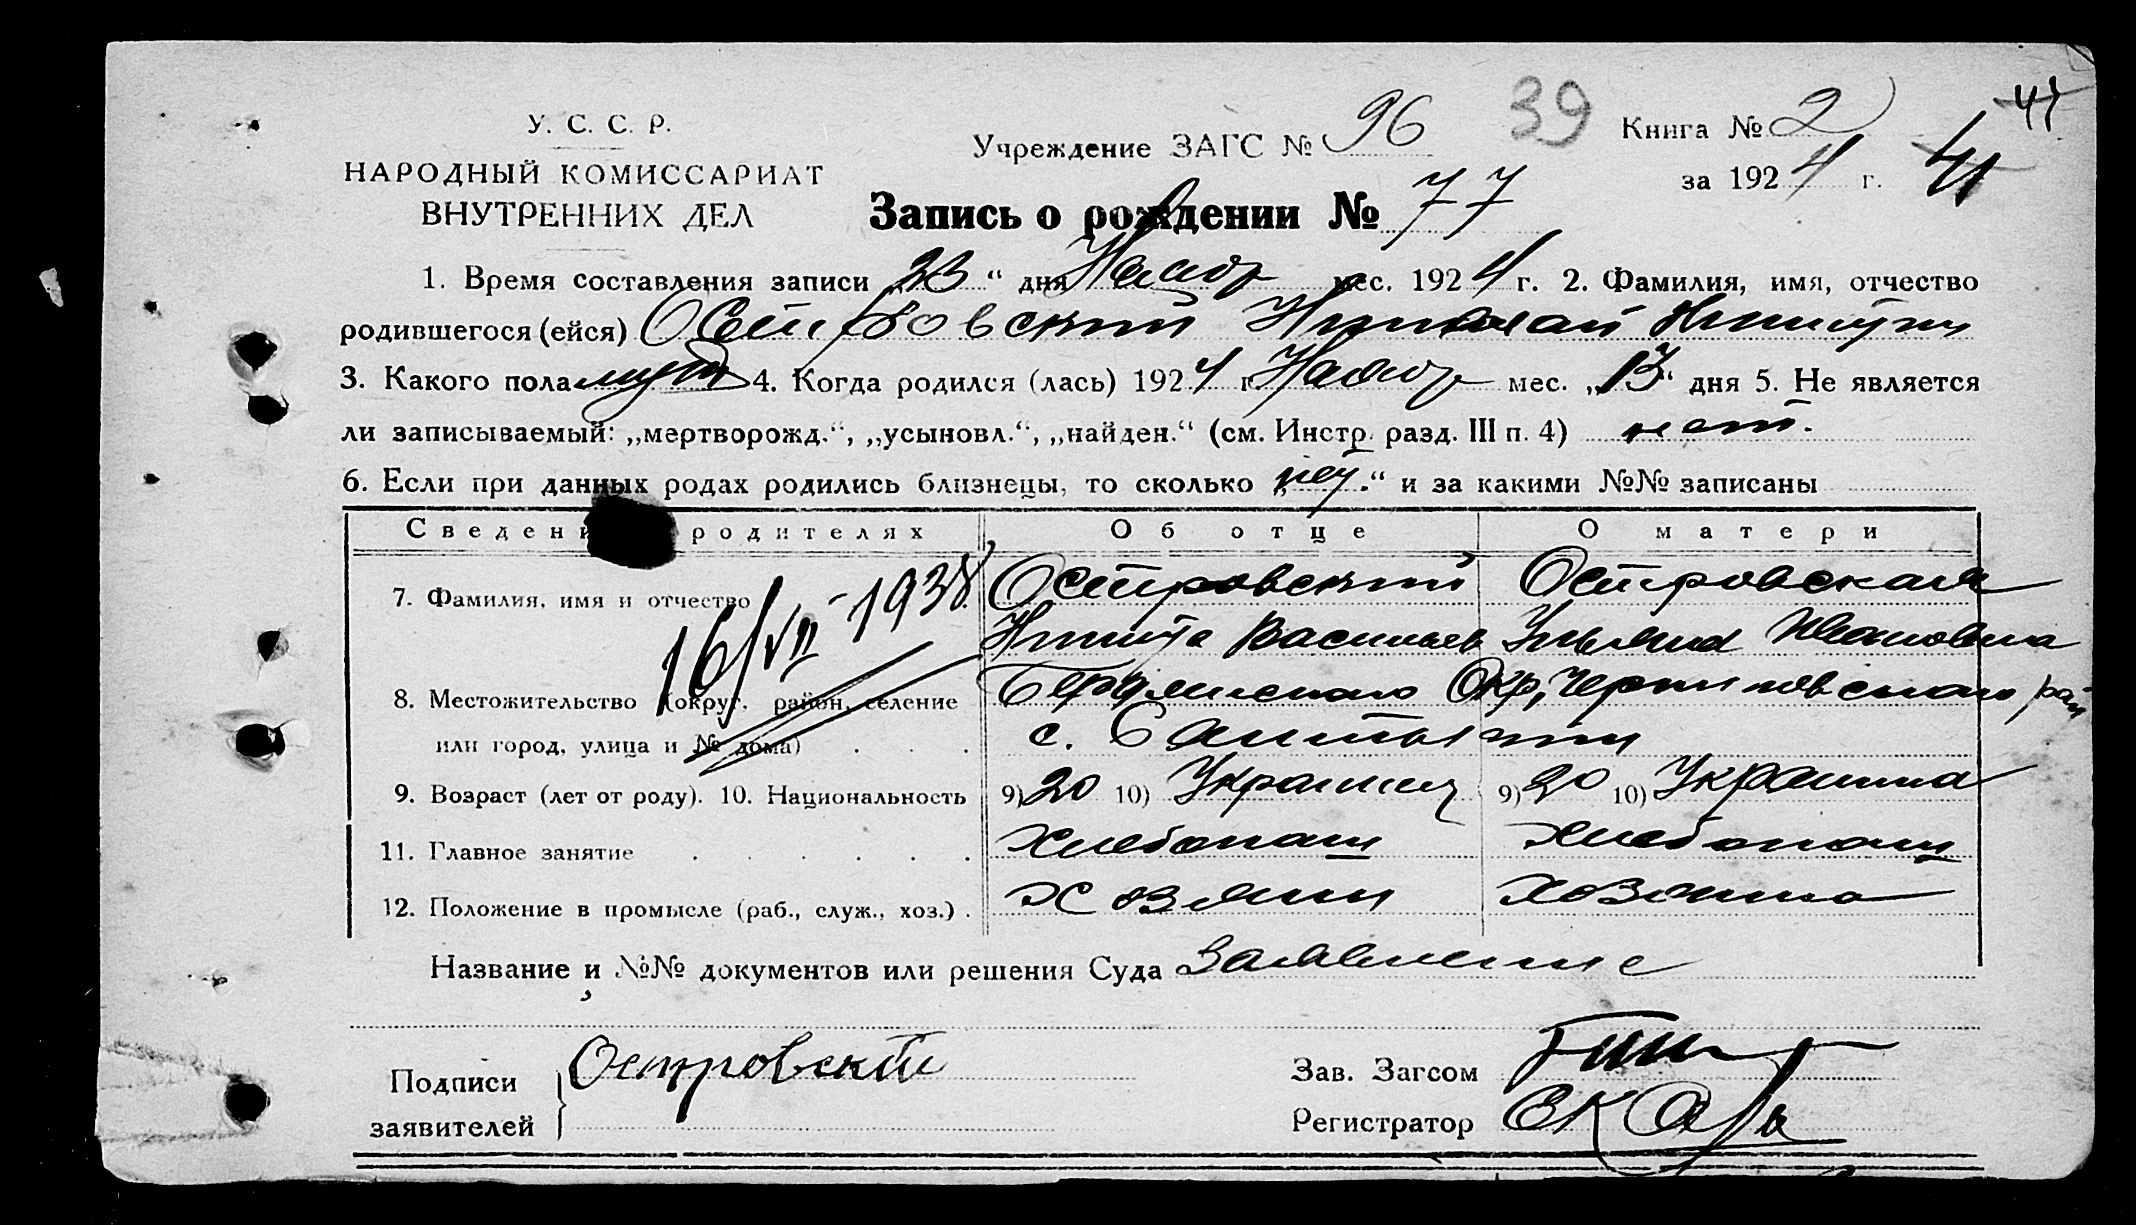 У. С. С. Р.
НАРОДНЫЙ КОМИССАРИАТ
ВНУТРЕННИХ ДЕЛ
Учреждение ЗАГС № 96
39
Книга № 2
за 1924 г.
41
41
Запись о рождении № 77
1. Время составления записи „23“ дня Наябр мес. 1924 г. 2. Фамилия, имя, отчество
родившегося (ейся) Островский Николай Никитич
3. Какого пола муж 4. Когда родился (лась) 1924 г. Наябр мес. „13“ дня 5. Не является
ли записываемый: „мертворожд.“, „усыновл.“, „найден.“ (см. Инстр. разд. III п. 4) нет.
6. Если при данных родах родились близнецы, то сколько „нет.“ и за какими №№ записаны
Сведени родителях Об отце О матери
7. Фамилия, имя и отчество Островский Островская
16/VII-1938
Никита Васильев Ульяна Ивановна
8. Местожительство (округ, район, селение
или город, улица и № дома) . . .
Окр, рай
с.
9. Возраст (лет от роду). 10. Национальность 9) 20 10) Украинец 9) 20 10) Украинка
11. Главное занятие . . . . . . Хлебопаш Хлебопаш
12. Положение в промысле (раб., служ., хоз.) . Хозяин Хозяика
Название и №№ документов или решения Суда Заявление
Подписи
заявителей
Островский
Зав. Загсом
Регистратор